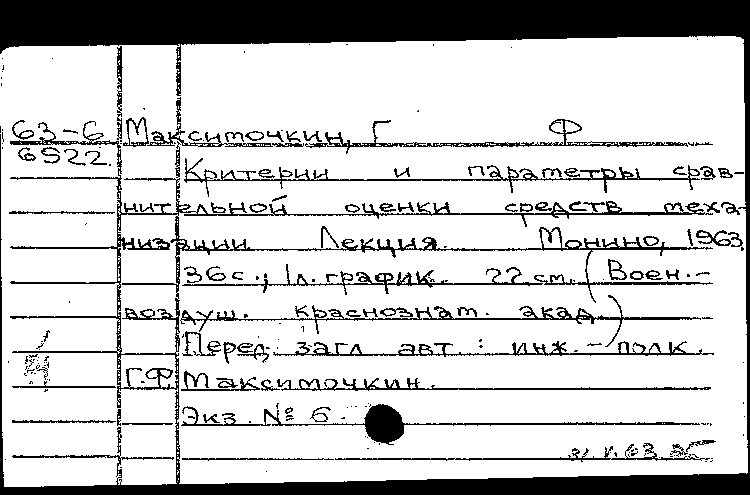 63-6 Максимочкин, Г Ф
6922.
Критерии и параметры срав-
нительной оценки средств меха-
низации Лекция. Монино, 1963.
36с.; 1л. график. 22 см. (Воен.-
воздуш. краснознам. акад.)
Перед загл авт. : инж.-полк.
Г.Ф. Максимочкин.
Экз. № 6.
31.V.63